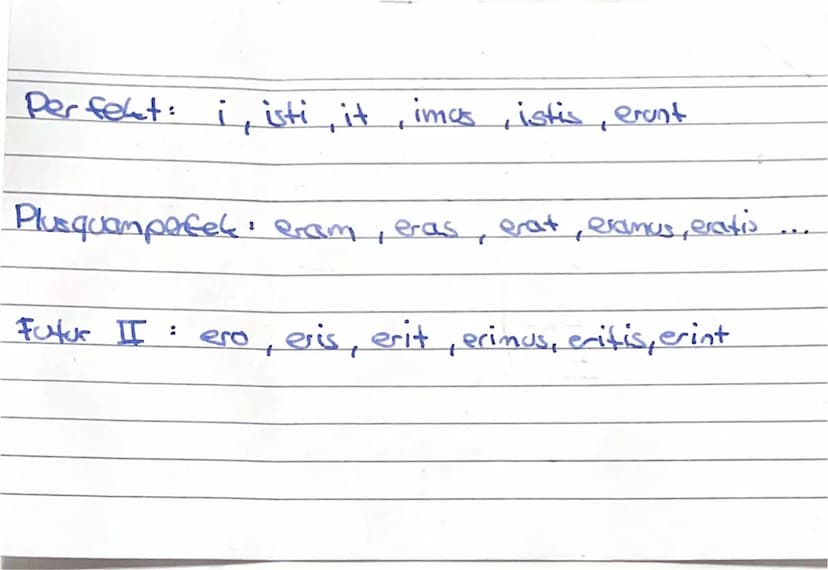 Perfekt: i, isti, it, imus, istis, erunt
Plusquamperfek: eram, eras, erat, eramus, eratis ...
Futur II: ero, eris, erit, erimus, eritis, erint